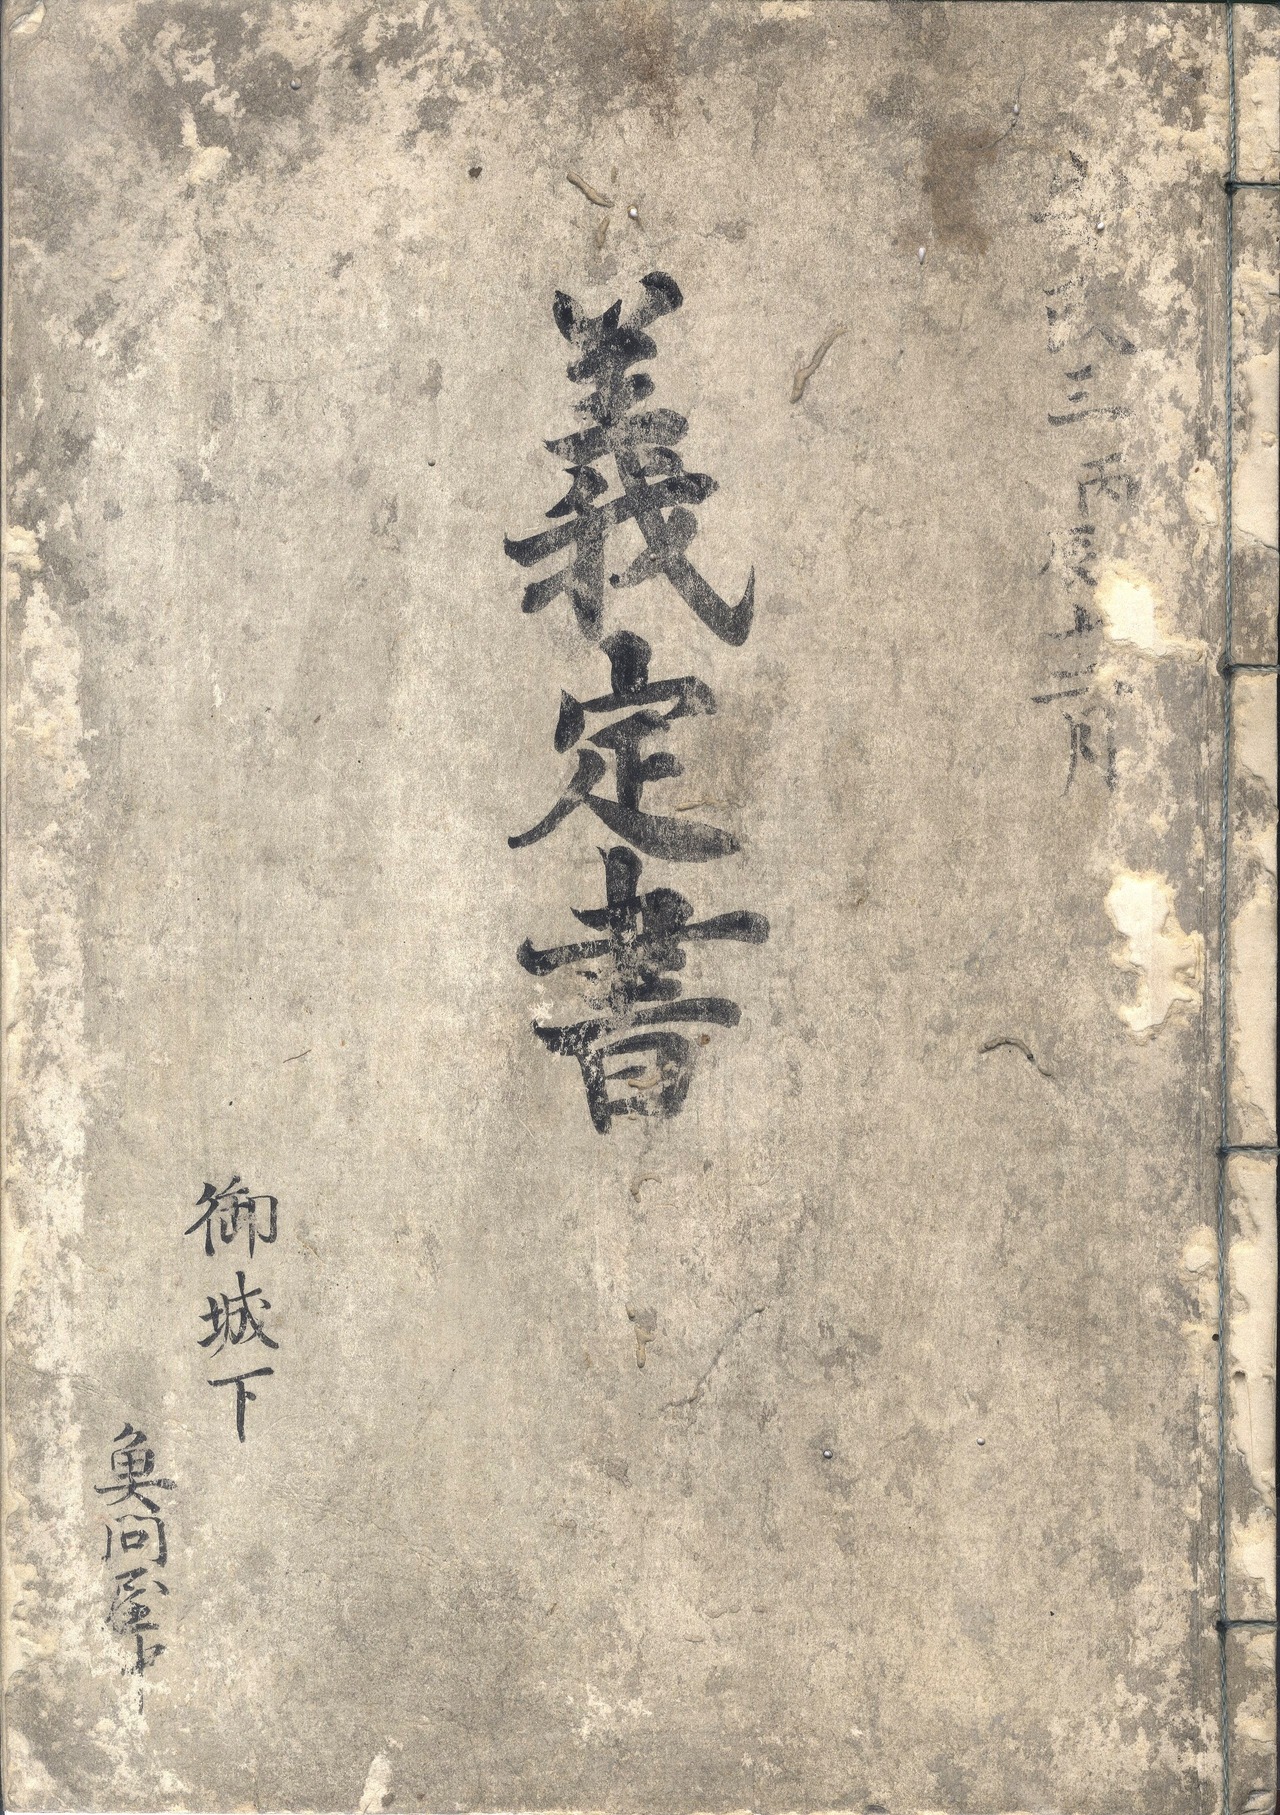 政三丙辰十二月
義定書
御城下
魚問屋中